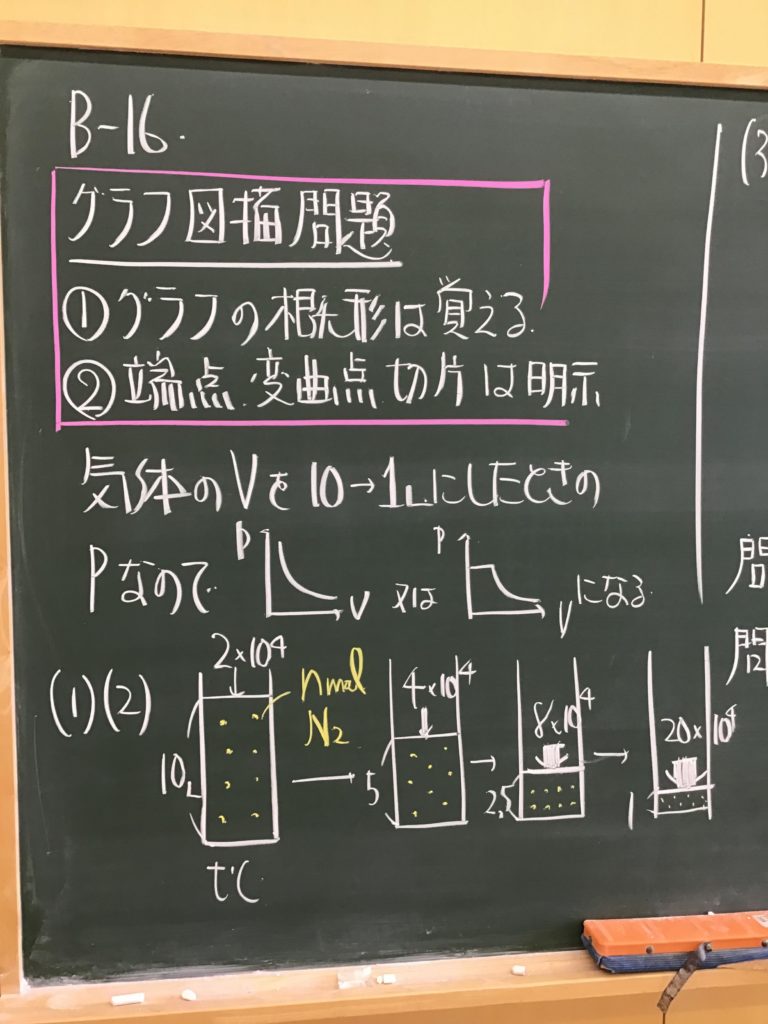 B-16.
グラフ図描問題
①グラフの概形は覚える.
②端点.変曲点.切片は明示
気体のVを10→1Lにしたときの
Pなので P V 又は P V になる.
(1)(2)
2×10⁴
n mol
N₂
10L
t℃
4×10⁴
5
8×10⁴
2.5
20×10⁴
1
(3
問
問